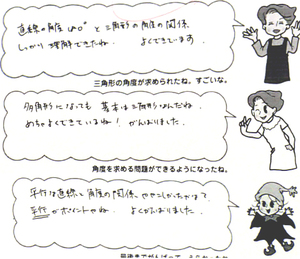 直線の角度180°と三角形の角度の関係、
しっかり理解できたね。 よくできています。
三角形の角度が求められたね。すごいな。
多角形になっても基本は三角形なんだね。
めちゃよくできているね! がんばりました。
角度を求める問題ができるようになったね。
平行な直線と角度の関係、ややこしかったかな?
平行がポイントやね。 よくがんばりました。